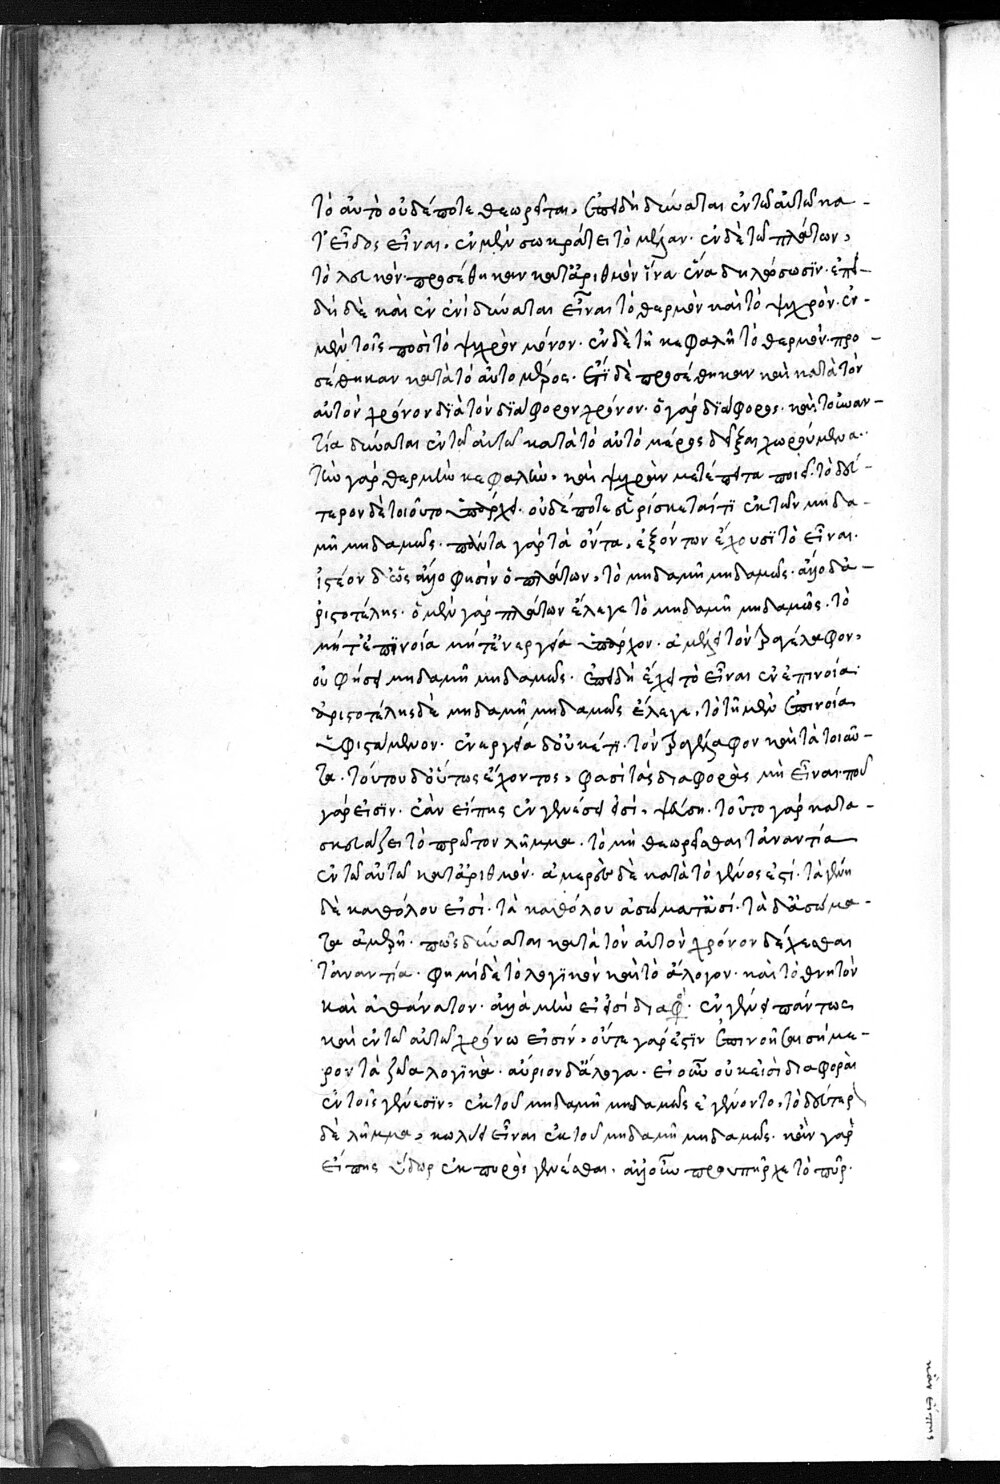 τὸ αὐτὸ οὐδέποτε θεωρεῖται, ἐπειδὴ δύναται ἐν τῶ αὐτῶ κα-
τ' εἶδος εἶναι, ἐν μὲν σωκράτει τὸ μέλαν· ἐν δὲ τῶ πλάτωνι,
τὸ λευκὸν· προσέθηκαν κατ' ἀριθμὸν ἵνα ἕνα δηλώσωσϊν· ἐπει-
δὴ δὲ καὶ ἐν ἑνὶ δύναται εἶναι τὸ θερμὸν καὶ τὸ ψυχρὸν· ἐν
μὲν τοῖς ποσὶ τὸ ψυχρὸν μόνον· ἐν δὲ τῇ κεφαλῇ τὸ θερμὸν· προ-
σέθηκαν κατὰ τὸ αὐτὸ μέρος· ἔτϊ δὲ προσέθηκαν καὶ κατὰ τὸν
αὐτὸν χρόνον διὰ τὸν διάφορον χρόνον· ὁ γὰρ διάφορος· καὶ τὰ ἐναν-
τία δύναται ἐν τῶ αὐτῶ κατὰ τὸ αὐτὸ μέρος δεῖξαι χωρούμενα·
τὴν γὰρ θερμὴν κεφαλὴν, καὶ ψυχρὰν μετέπειτα ποιεῖ· τὸ δεύ-
τερον δὲ τοιοῦτο ὑπάρχει· οὐδέποτε εὑρίσκεταί τϊ ἐκ τῶν μηδα-
μῆ μηδαμῶς· πάντα γὰρ τὰ ὄντα, ἐξ ὄντων ἔχουσϊ τὸ εἶναι·
ἰστέον δὲ ὡς ἄλλο φησὶν ὁ πλάτων, τὸ μηδαμῆ μηδαμῶς· ἄλλο δὲ ἀ-
ριστοτέλης· ὁ μὲν γὰρ πλάτων ἔλεγε τὸ μηδαμῆ μηδαμῶς· τὸ
μήτ' ἐπϊνοία μήτ' ἐνεργεία ὑπάρχον· ἀμέλει τὸν τραγέλαφον,
οὐ φήσει μηδαμῆ μηδαμῶς· ἐπειδὴ ἔχει τὸ εἶναι ἐν ἐπινοία·
ἀριστοτέλης δὲ μηδαμῆ μηδαμῶς ἔλεγε, τὸ τῇ μὲν ἐπινοία
ὑφιστάμενον· ἐνεργεία δ' οὐκέτϊ· τὸν τραγέλαφον καὶ τὰ τοιαῦ-
τα· τούτου δ' οὕτως ἔχοντος, φασὶ τὰς διαφορὰς μὴ εἶναι· ποῦ
γὰρ εἰσϊν· ἐὰν εἴπης ἐν γενέσει εἰσὶ, ψεύση· τοῦτο γὰρ κατα-
σκευάζει τὸ πρῶτον λῆμμα· τὸ μὴ θεωρεῖσθαι τἀναντία
ἐν τῶ αὐτῶ κατ' ἀριθμὸν· ἀμερὲς δὲ κατὰ τὸ γένος ἐστί· τὰ γένη
δὲ καθόλου εἰσί· τὰ καθόλου ἀσώματά εἰσί· τὰ δ' ἀσώμα-
τα ἀμερῆ· πῶς δύναται κατὰ τὸν αὐτὸν χρόνον δέχεσθαι
τἀναντία· φημὶ δὲ τὸ λογϊκὸν καὶ τὸ ἄλογον· καὶ τὸ θνητὸν
καὶ ἀθάνατον· ἀλλὰ μὴν εἰ εἰσὶ διαφο· ἐν γένει πάντως
καὶ ἐν τῶ αὐτῶ χρόνω εἰσίν, οὔτε γὰρ ἐστϊν ἐπινοῆσαι σήμε-
ρον τὰ ζῶα λογϊκὰ· αὔριον δ' ἄλογα· εἰ οὖν οὐκ εἰσὶ διαφοραὶ
ἐν τοῖς γένεσϊν, ἐκ τοῦ μηδαμῆ μηδαμῶς ἐγένοντο, τὸ δεύτερον
δὲ λῆμμα, κωλύει εἶναι ἐκ τοῦ μηδαμῆ μηδαμῶς· κἂν γὰρ
εἴπης ὕδωρ ἐκ πυρὸς γενέσθαι, ἀλλ' οὖν προυπῆρχε τὸ πῦρ·
κἂν εἴπης